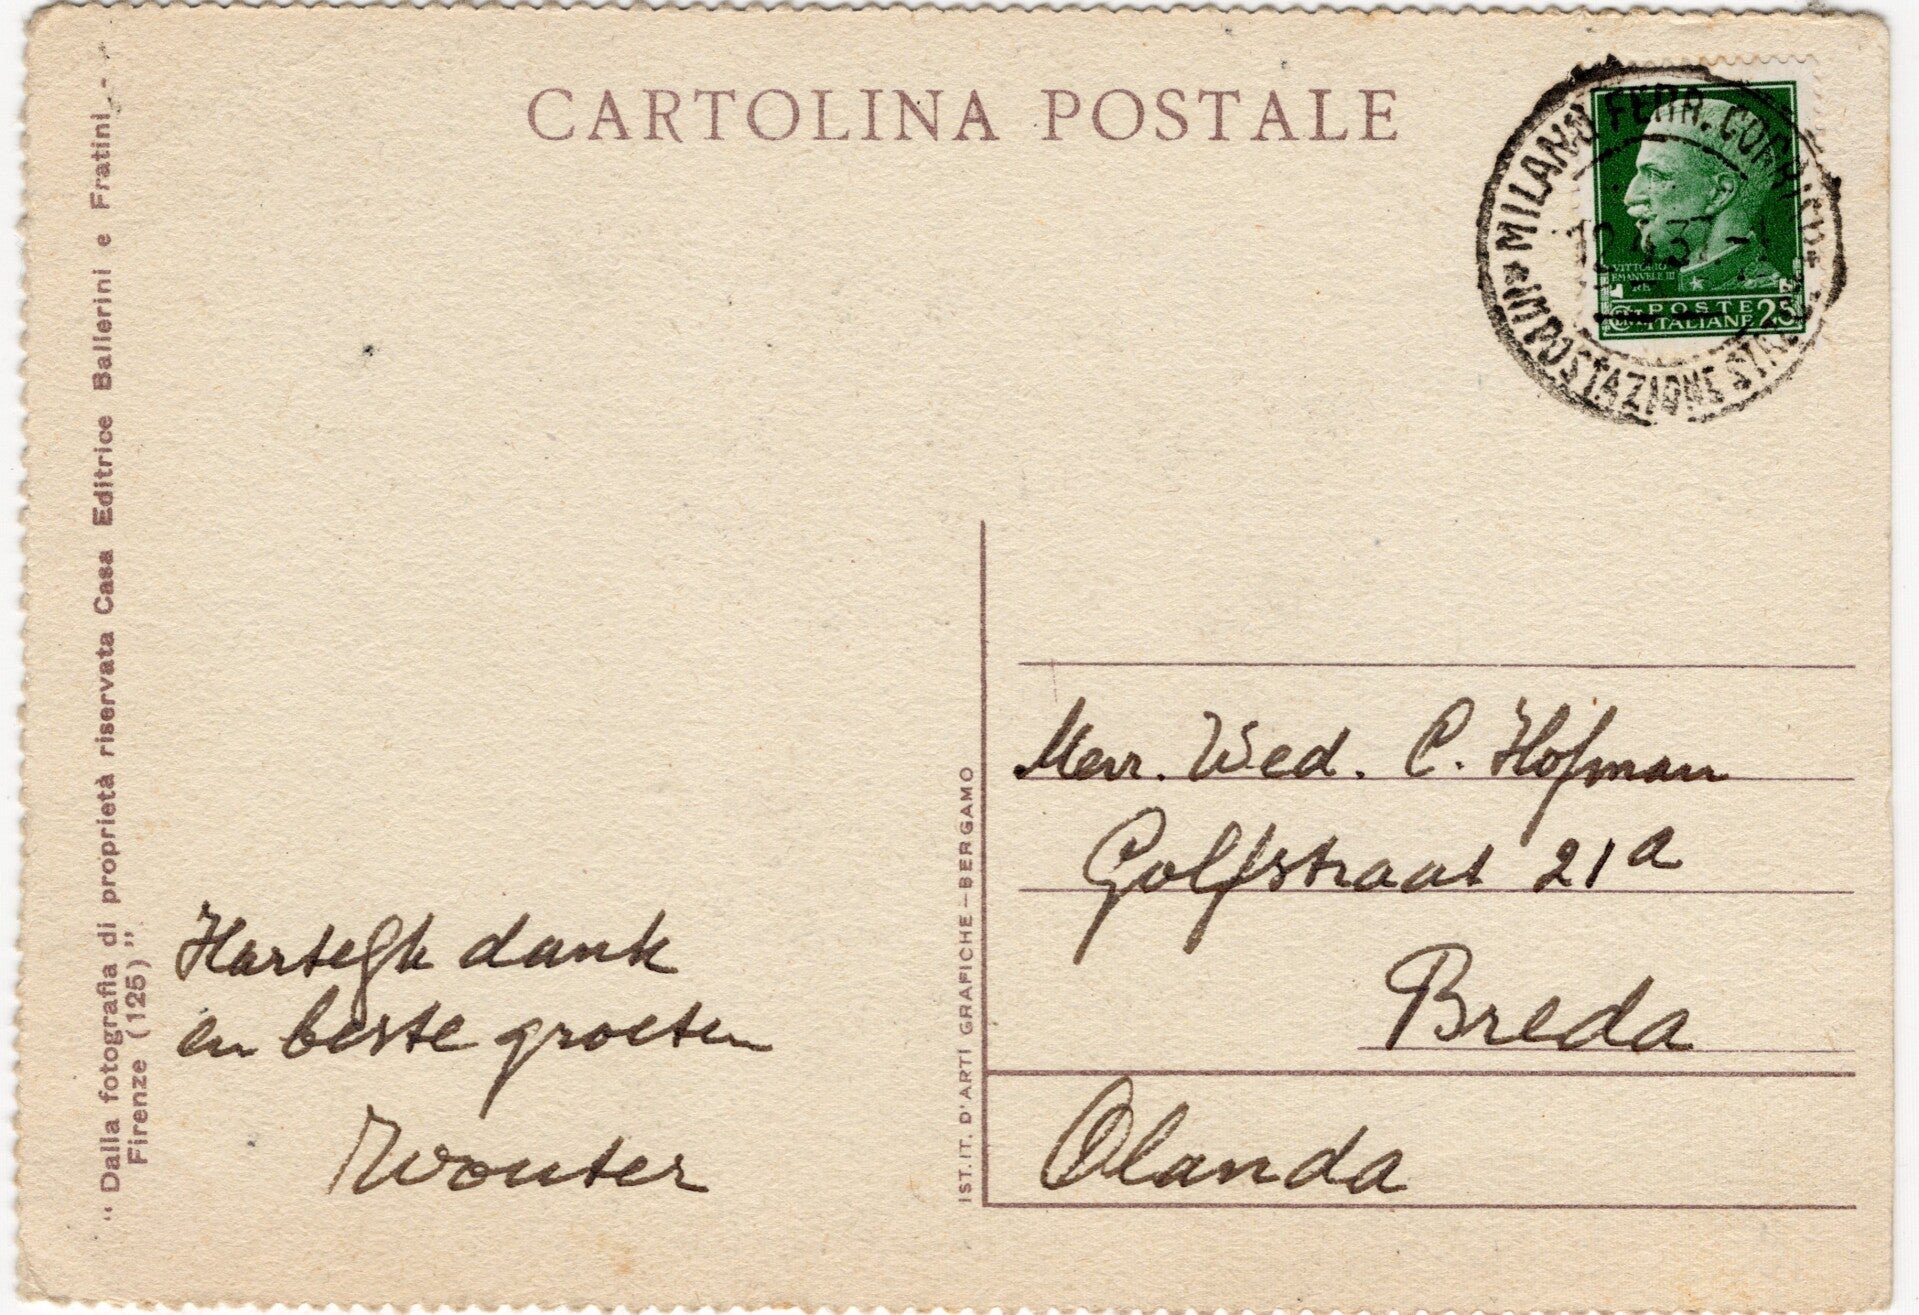 CARTOLINA POSTALE
MILANO FERR. CORRISP.
12.4.3
IMPOSTAZIONE
VITTORIO
EMANVELE III
RE
POSTE
ITALIANE
CENT. 25
" Dalla fotografia di proprietà riservata Casa Editrice Ballerini e Fratini -
Firenze (125) "
Hartelijk dank
en beste groeten
Wouter
IST. IT. D'ARTI GRAFICHE - BERGAMO
Mevr. Wed. C. Hofman
Golfstraat 21a
Breda
Olanda